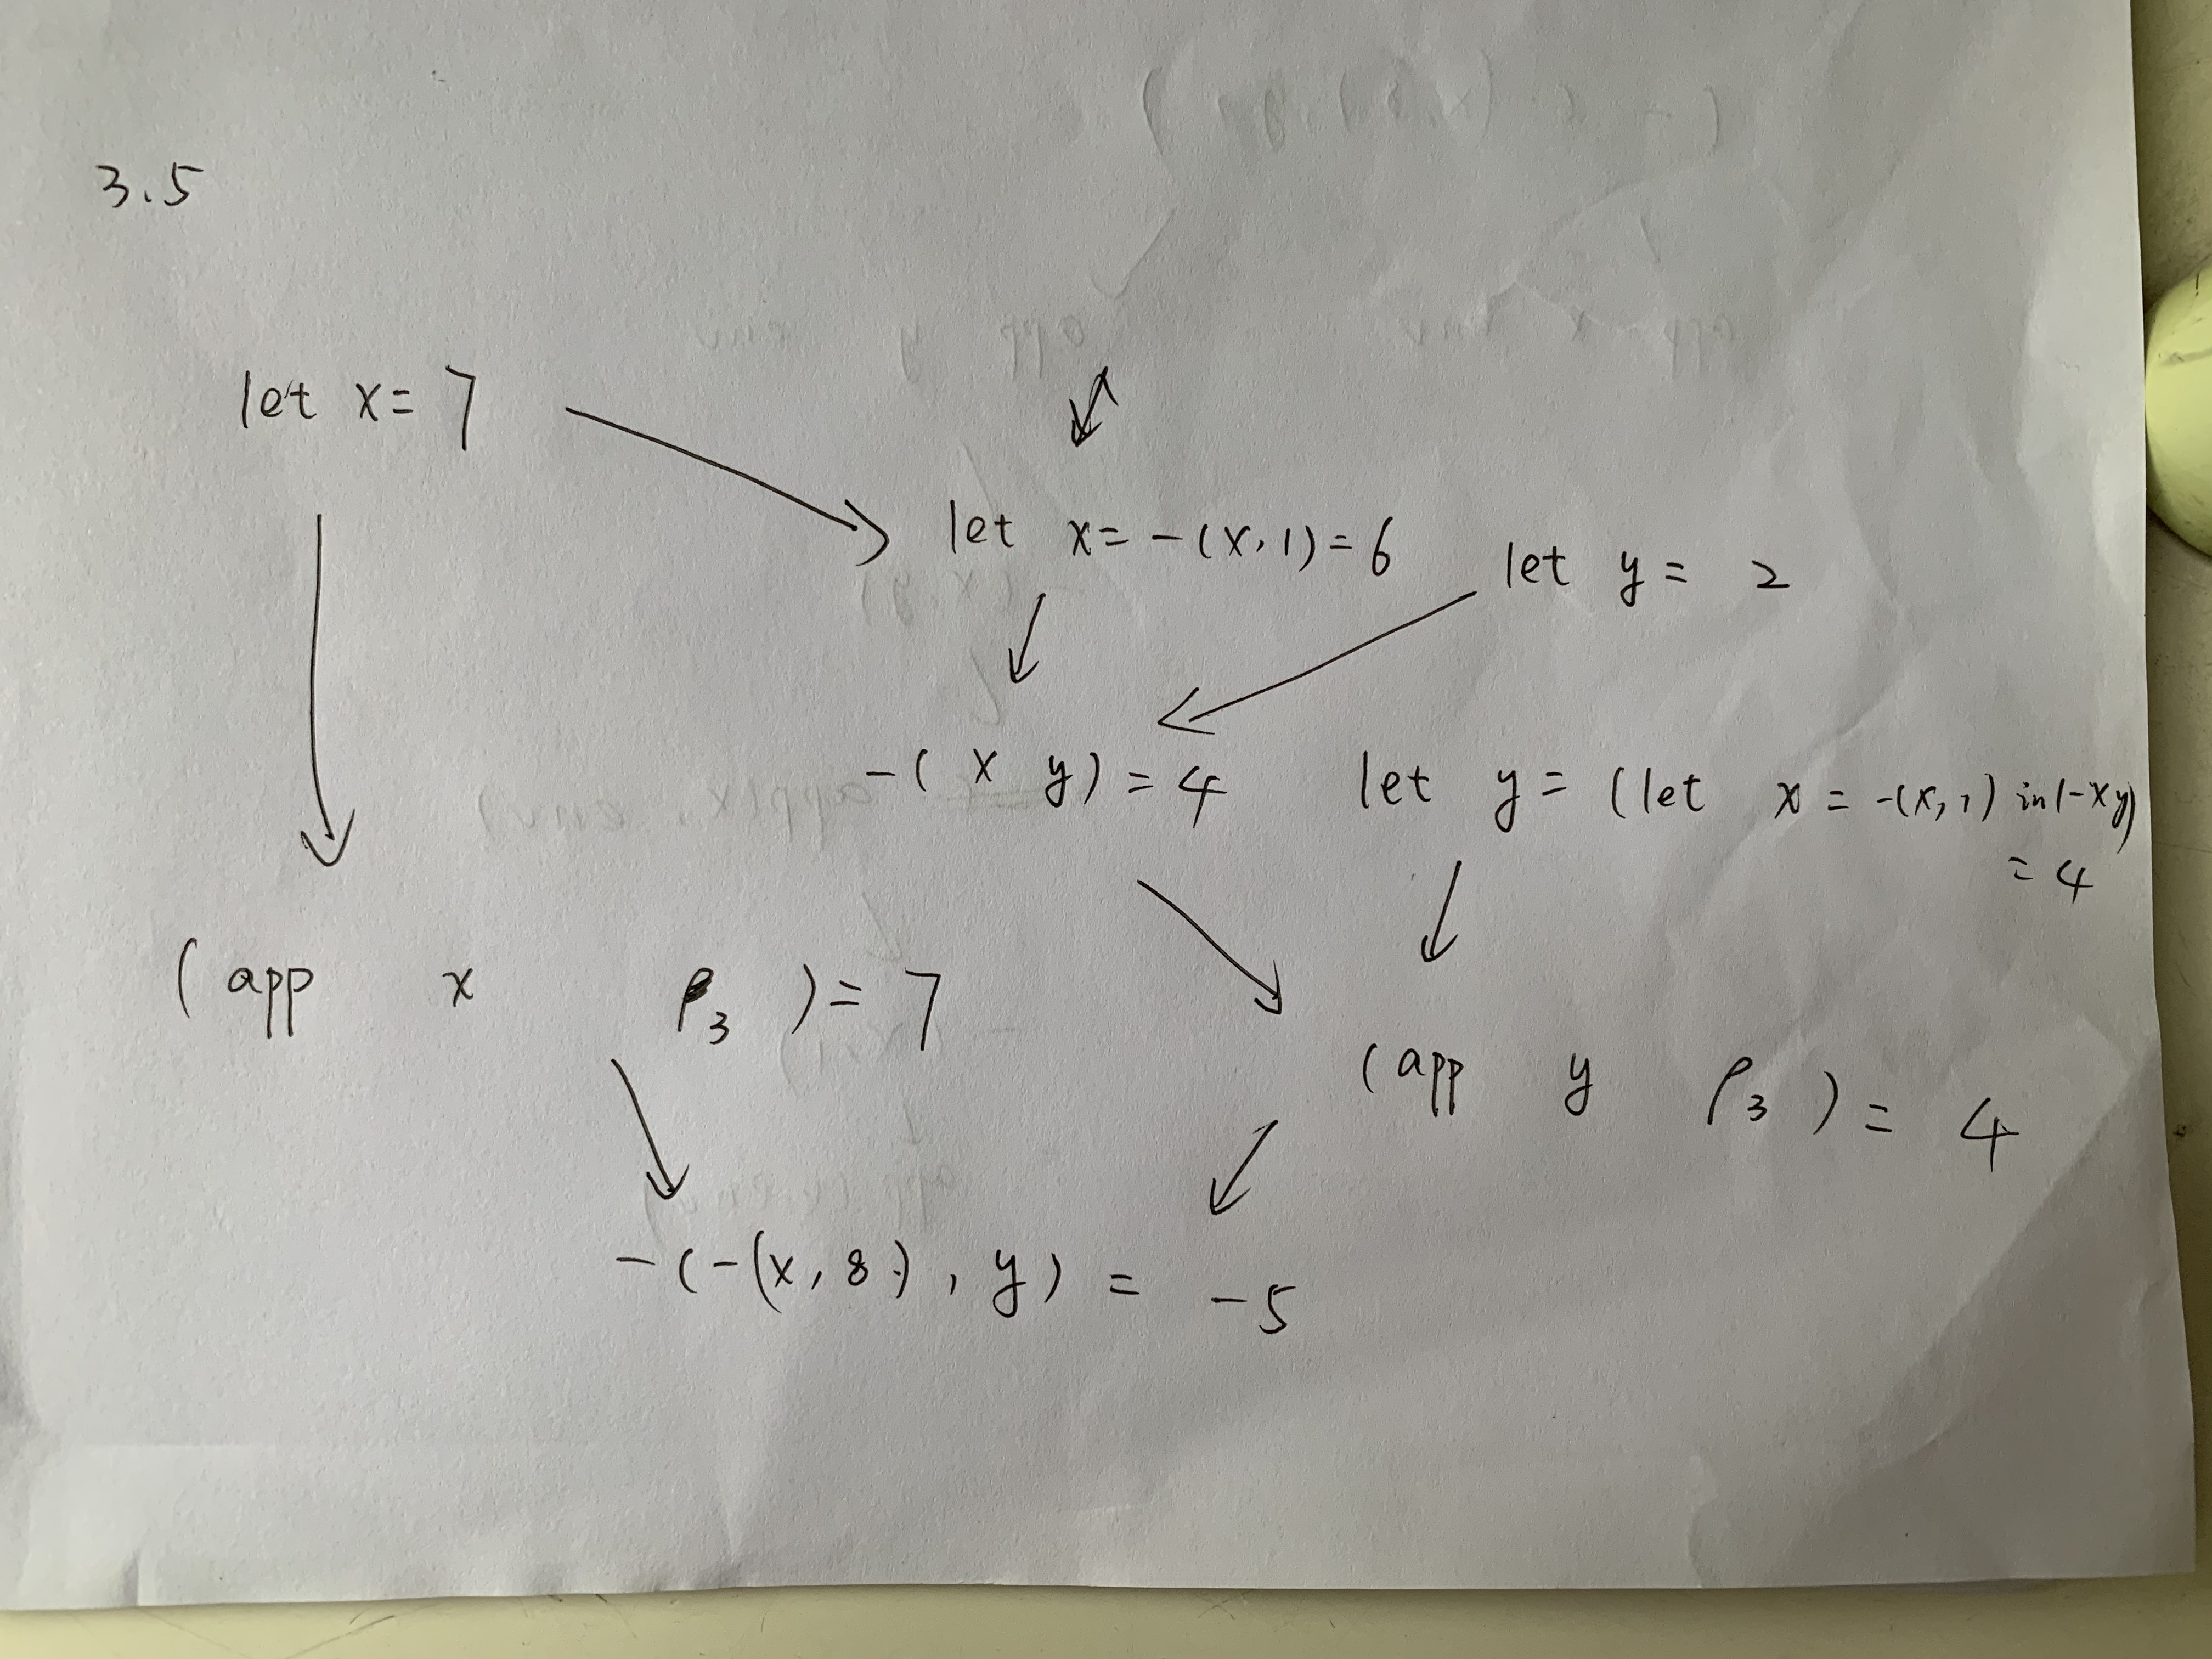 3.5
let x = 7
let x = -(x, 1) = 6
let y = 2
-( x y) = 4
let y = (let x = -(x, 1) in (-xy)
= 4
(app x ρ3 ) = 7
(app y ρ3 ) = 4
-(-(x, 8), y) = -5